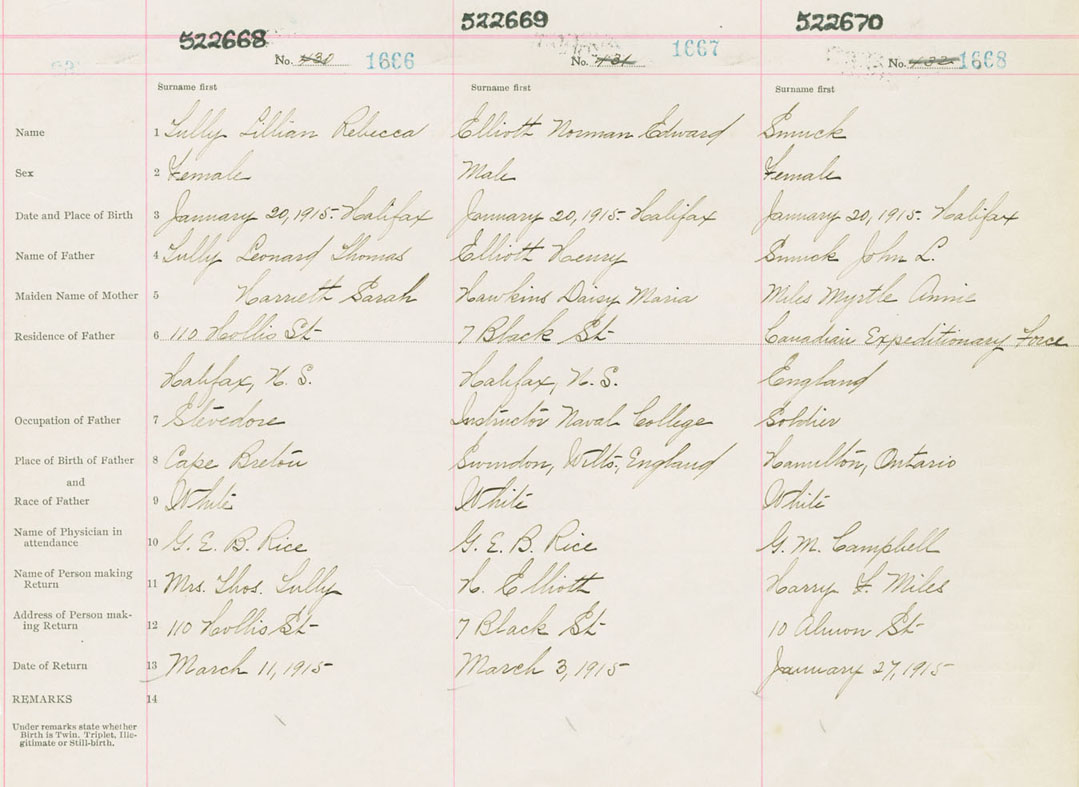 522668 522669 522670
No. 430 1666 No. 431 1667 No. 432 1668
Surname first Surname first Surname first
Name 1 Lully Lillian Rebecca Elliott Norman Edward Smuck
Sex 2 Female Male Female
Date and Place of Birth 3 January 20, 1915- Halifax January 20, 1915- Halifax January 20, 1915- Halifax
Name of Father 4 Lully Leonard Thomas Elliott Henry Smuck John L.
Maiden Name of Mother 5 Harriett Sarah Hawkins Daisy Maria Miles Myrtle Annie
Residence of Father 6 110 Hollis St 7 Black St Canadian Expeditionary Force
Halifax, N. S. Halifax, N. S. England
Occupation of Father 7 Stevedore Instructor Naval College Soldier
Place of Birth of Father 8 Cape Breton Swindon, Wilts, England Hamilton, Ontario
and
Race of Father 9 White White White
Name of Physician in
attendance 10 G. E. B. Rice G. E. B. Rice G. M. Campbell
Name of Person making
Return 11 Mrs. Thos. Lully H. Elliott Harry F. Miles
Address of Person mak-
ing Return 12 110 Hollis St 7 Black St 10 Almon St
Date of Return 13 March 11, 1915 March 3, 1915 January 27, 1915
REMARKS 14
Under remarks state whether
Birth is Twin, Triplet, Ille-
gitimate or Still-birth.